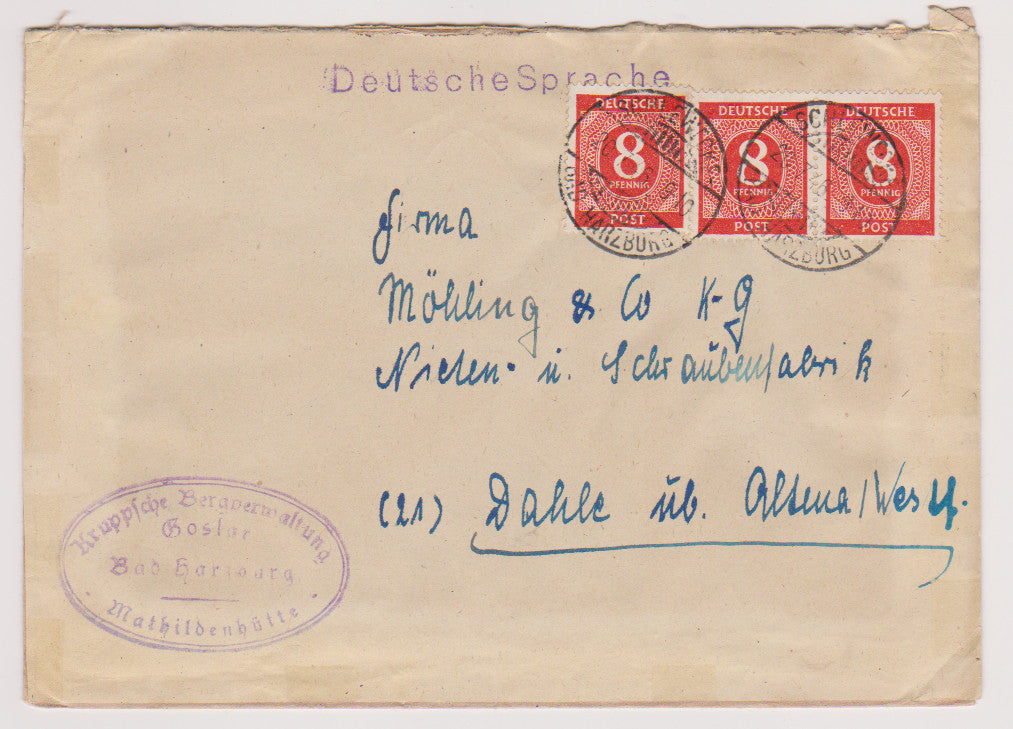 Deutsche Sprache
DEUTSCHE
8
PFENNIG
POST
DEUTSCHE
8
PFENNIG
POST
DEUTSCHE
8
PFENNIG
POST
HARZBURG
HARZBURG
Firma
Möhling & Co K-G
Nieten- u. Schraubenfabrik
(21) Dahle üb. Altena/Westf.
Kruppsche Bergverwaltung
Goslar
Bad Harzburg
· Mathildenhütte ·